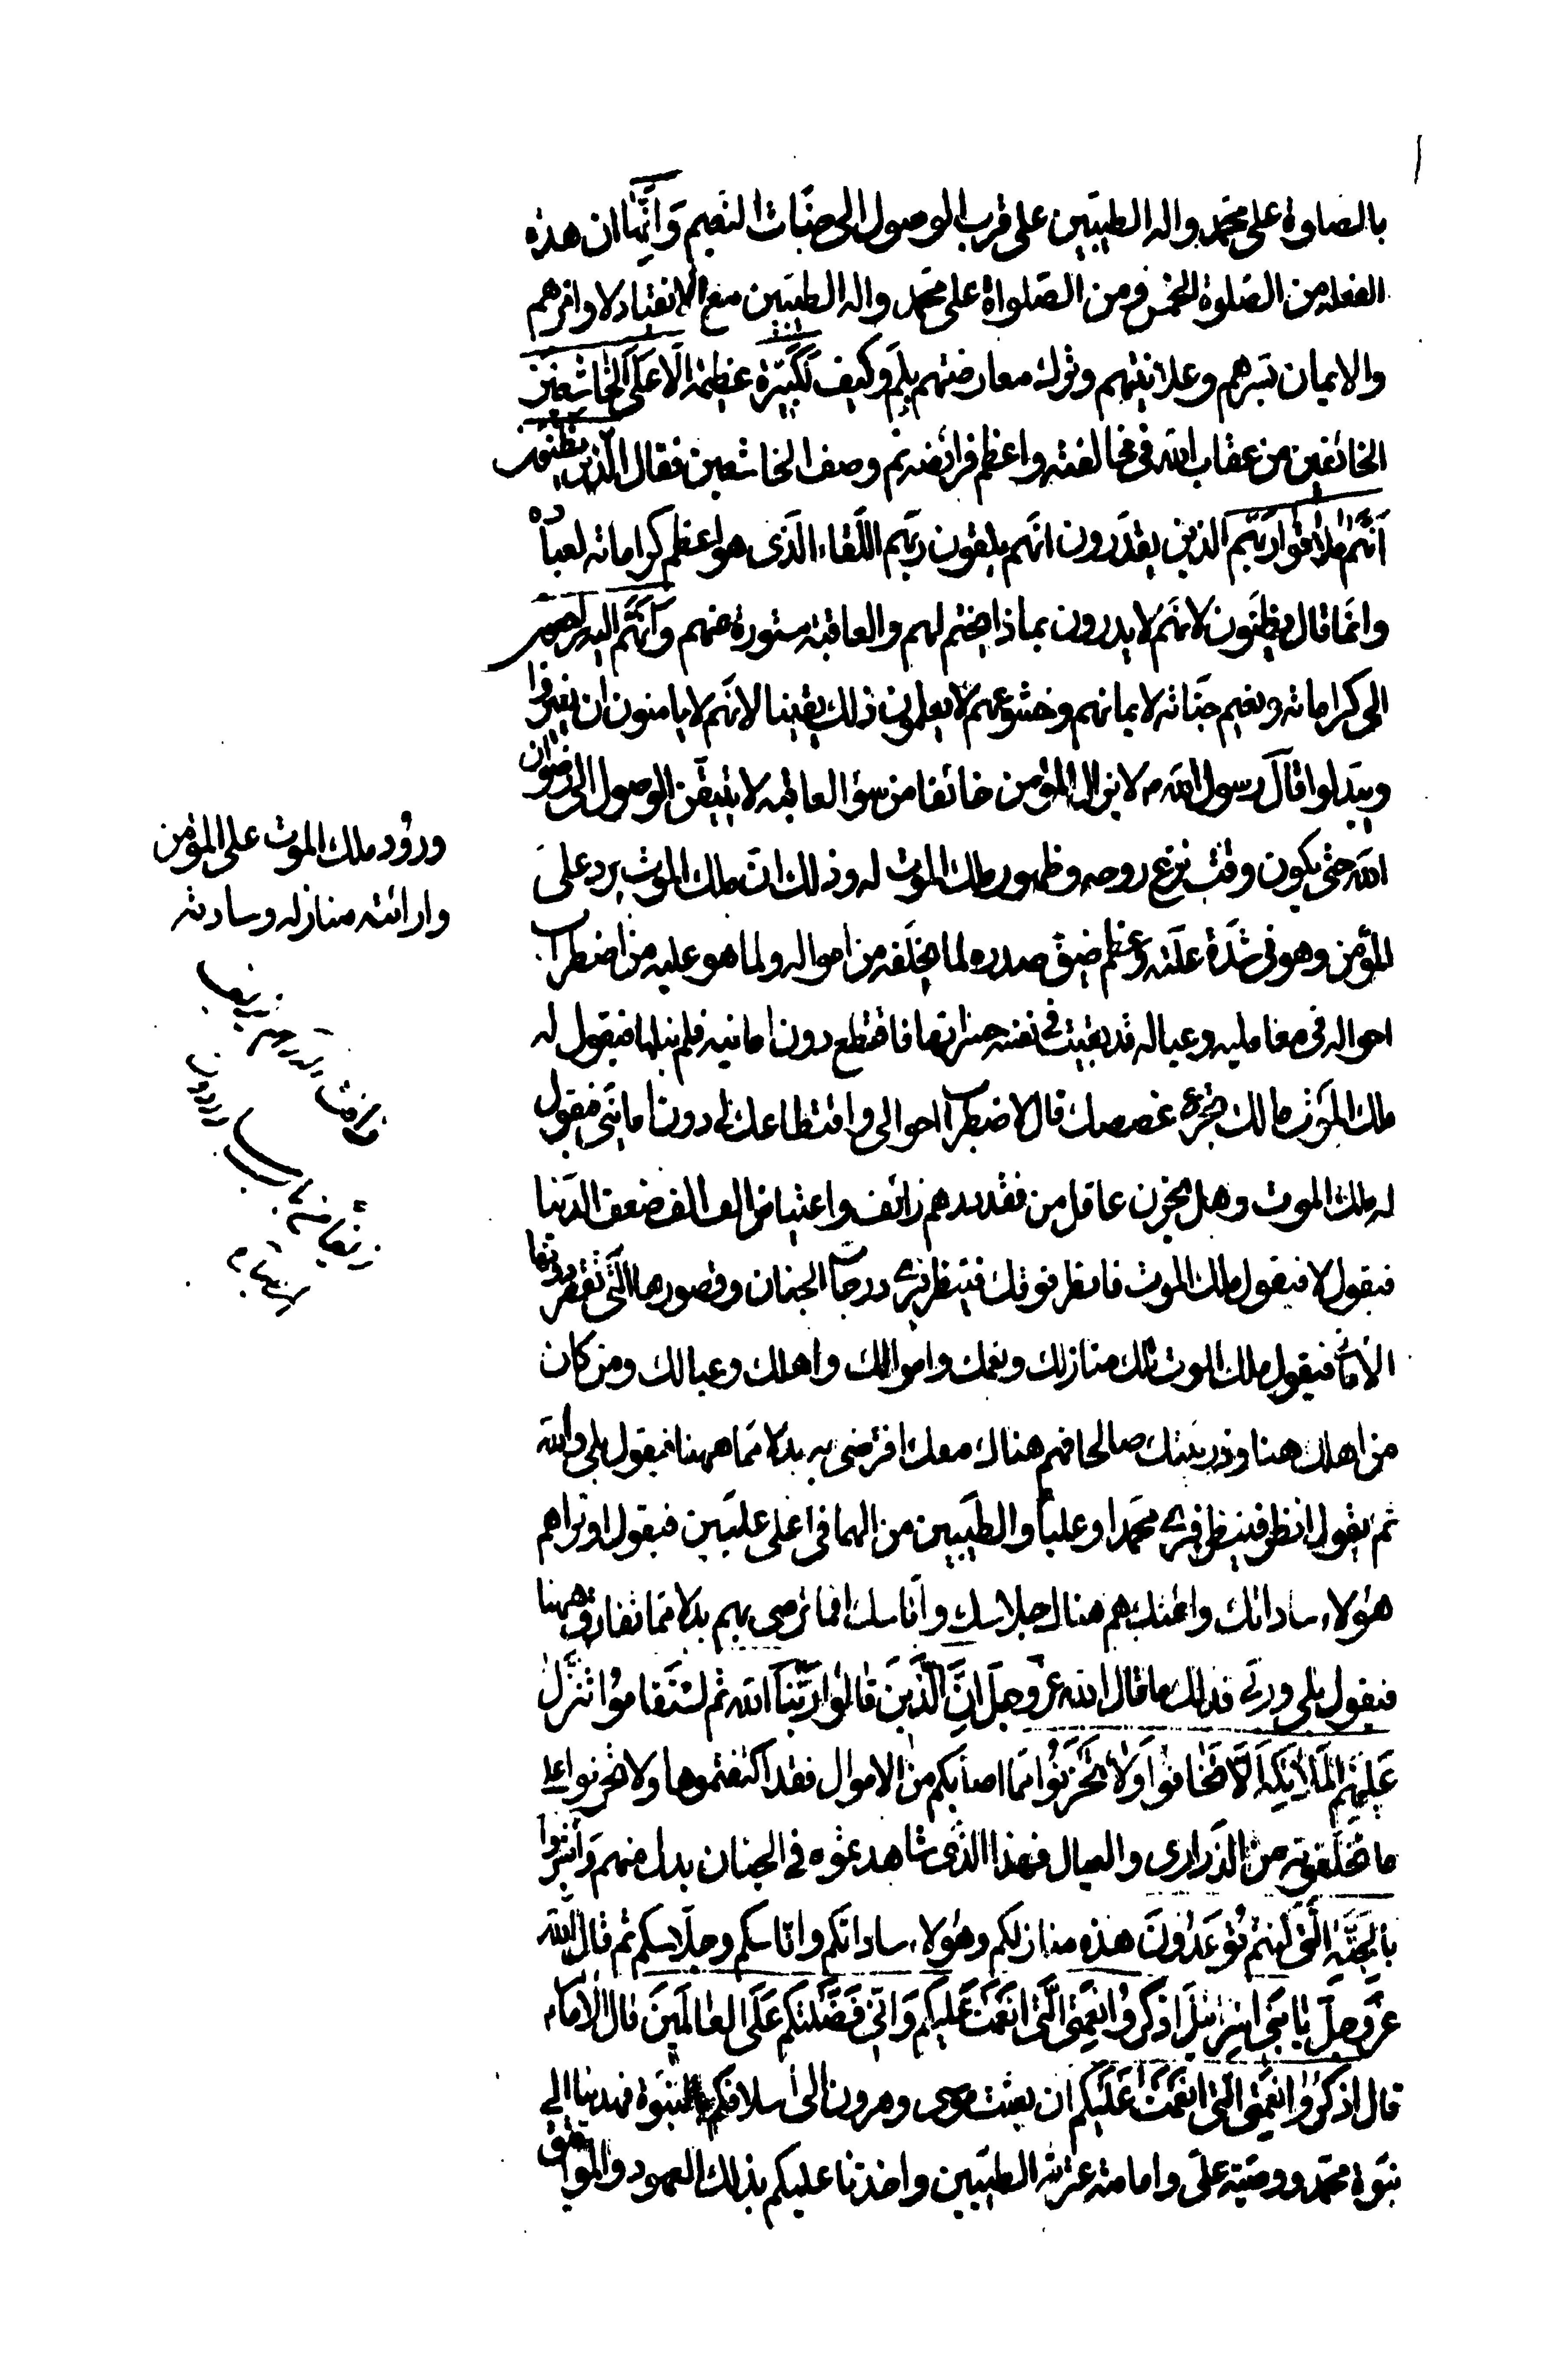 بالصلوة على محمد واله الطيبين على قرب الوصول الى جنات النعيم وَاِنَّهَا ان هذه
الفعله من الصلوة الخمس و من الصلواة على محمد واله الطيبين مع الانقياد لاوامرهم
والايمان بسرهم وعلانيتهم وترك معارضتهم بلم وكيف لَكَبيرَة عظيمة اِلَّا عَلَى الْخَاشِعِينَ
الخائفين من عقاب الله فى مخالفته واعظم فرائضه ثم وصف الخاشعين فقال الَّذِينَ يَظُنُّونَ
اَنَّهُمْ مُلَاقُوا رَبِّهِمْ الذين يقدرون انهم يلقون ربهم اللقاء الذى هو اعظم كراماته لعباده
وانما قال يظنون لانهم لا يدرون بماذا يختم لهم والعاقبة مستورة عنهم وَاَنَّهُم اليه راجعون
الى كراماته ونعيم جناته لايمانهم وخشوعهم لا يعلمون ذلك يقينا لانهم لا يامنون ان يغيروا
ويبدلوا قال رسول الله م لا يزال المؤمن خائفا من سوء العاقبه لا يتيقن الوصول الى رضوان
الله حتى يكون وقت نزع روحه وظهور ملك الموت له وذلك ان ملك الموت يرد على
المؤمن وهو فى شدة علته وعظم ضيق صدره لما يخلفه من امواله ولما هو عليه من اضطراب
احواله فى معامليه وعياله قد بقيت فى نفسه حسراتها فاقتطع دون امانيه فلم ينلها فيقول له
ملك الموت مالك تجرع غصصك قال لاضطراب احوالى واقتطاعك لى دون امانى فيقول
له ملك الموت وهل يحزن عاقل من فقد درهم زائف واعتياض الف الف ضعف الدنيا
فيقول لا فيقول ملك الموت فانظر فوقك فينظر فيرى درجات الجنان وقصورها التى تقصر دونها
الامانى فيقول ملك الموت تلك منازلك ونعمك واموالك واهلك وعيالك ومن كان
من اهلك هنا وذريتك صالحا فهم هناك معك افترضى به بدلا مما ههنا فيقول بلى والله
ثم يقول انظر فينظر فيرى محمدا وعليا والطيبين من الهما فى اعلى عليين فيقول اوتراهم
هؤلاء ساداتك وائمتك هم هناك جلاسك واناسك افما ترضى بهم بدلا مما تفارق ههنا
فيقول بلى وربى فذلك ما قال الله عز وجل اِنَّ الَّذِينَ قَالُوا رَبُّنَا الله ثم استَقَامُوا تتنزل
عَلَيْهِمُ الْمَلَائِكَةُ اَلَّا تَخَافُوا وَلَا تَحْزَنُوا فما اصابكم من الاموال فقد اكتفيتموها ولا تحزنوا على
ما تخلفونه من الذرارى والعيال فهذا الذى شاهدتموه فى الجنان بدل منهم وَاَبْشِرُوا
بِالْجَنَّةِ الَّتِى كُنْتُمْ تُوعَدُونَ هذه منازلكم وهؤلاء ساداتكم واناسكم وجلاسكم ثم قال الله
عَزَّ وَجَلَّ يَا بَنِى اِسْرَائِيلَ اذْكُرُوا نِعْمَتِىَ الَّتِى اَنْعَمْتُ عَلَيْكُمْ وَاَنِّى فَضَّلْتُكُمْ عَلَى الْعَالَمِينَ قال الامام
قال اذْكُرُوا نِعْمَتِى الَّتى اَنْعَمْتُ عَلَيْكُم ان بعثت موسى وهرون الى اسلافكم بالنبوة فهديناهم الى
نبوة محمد ووصية على وامامة عترته الطيبين واخذنا عليكم بذلك العهود والمواثيق
ورود ملك الموت على المؤمن
وارائته منازله وسادته